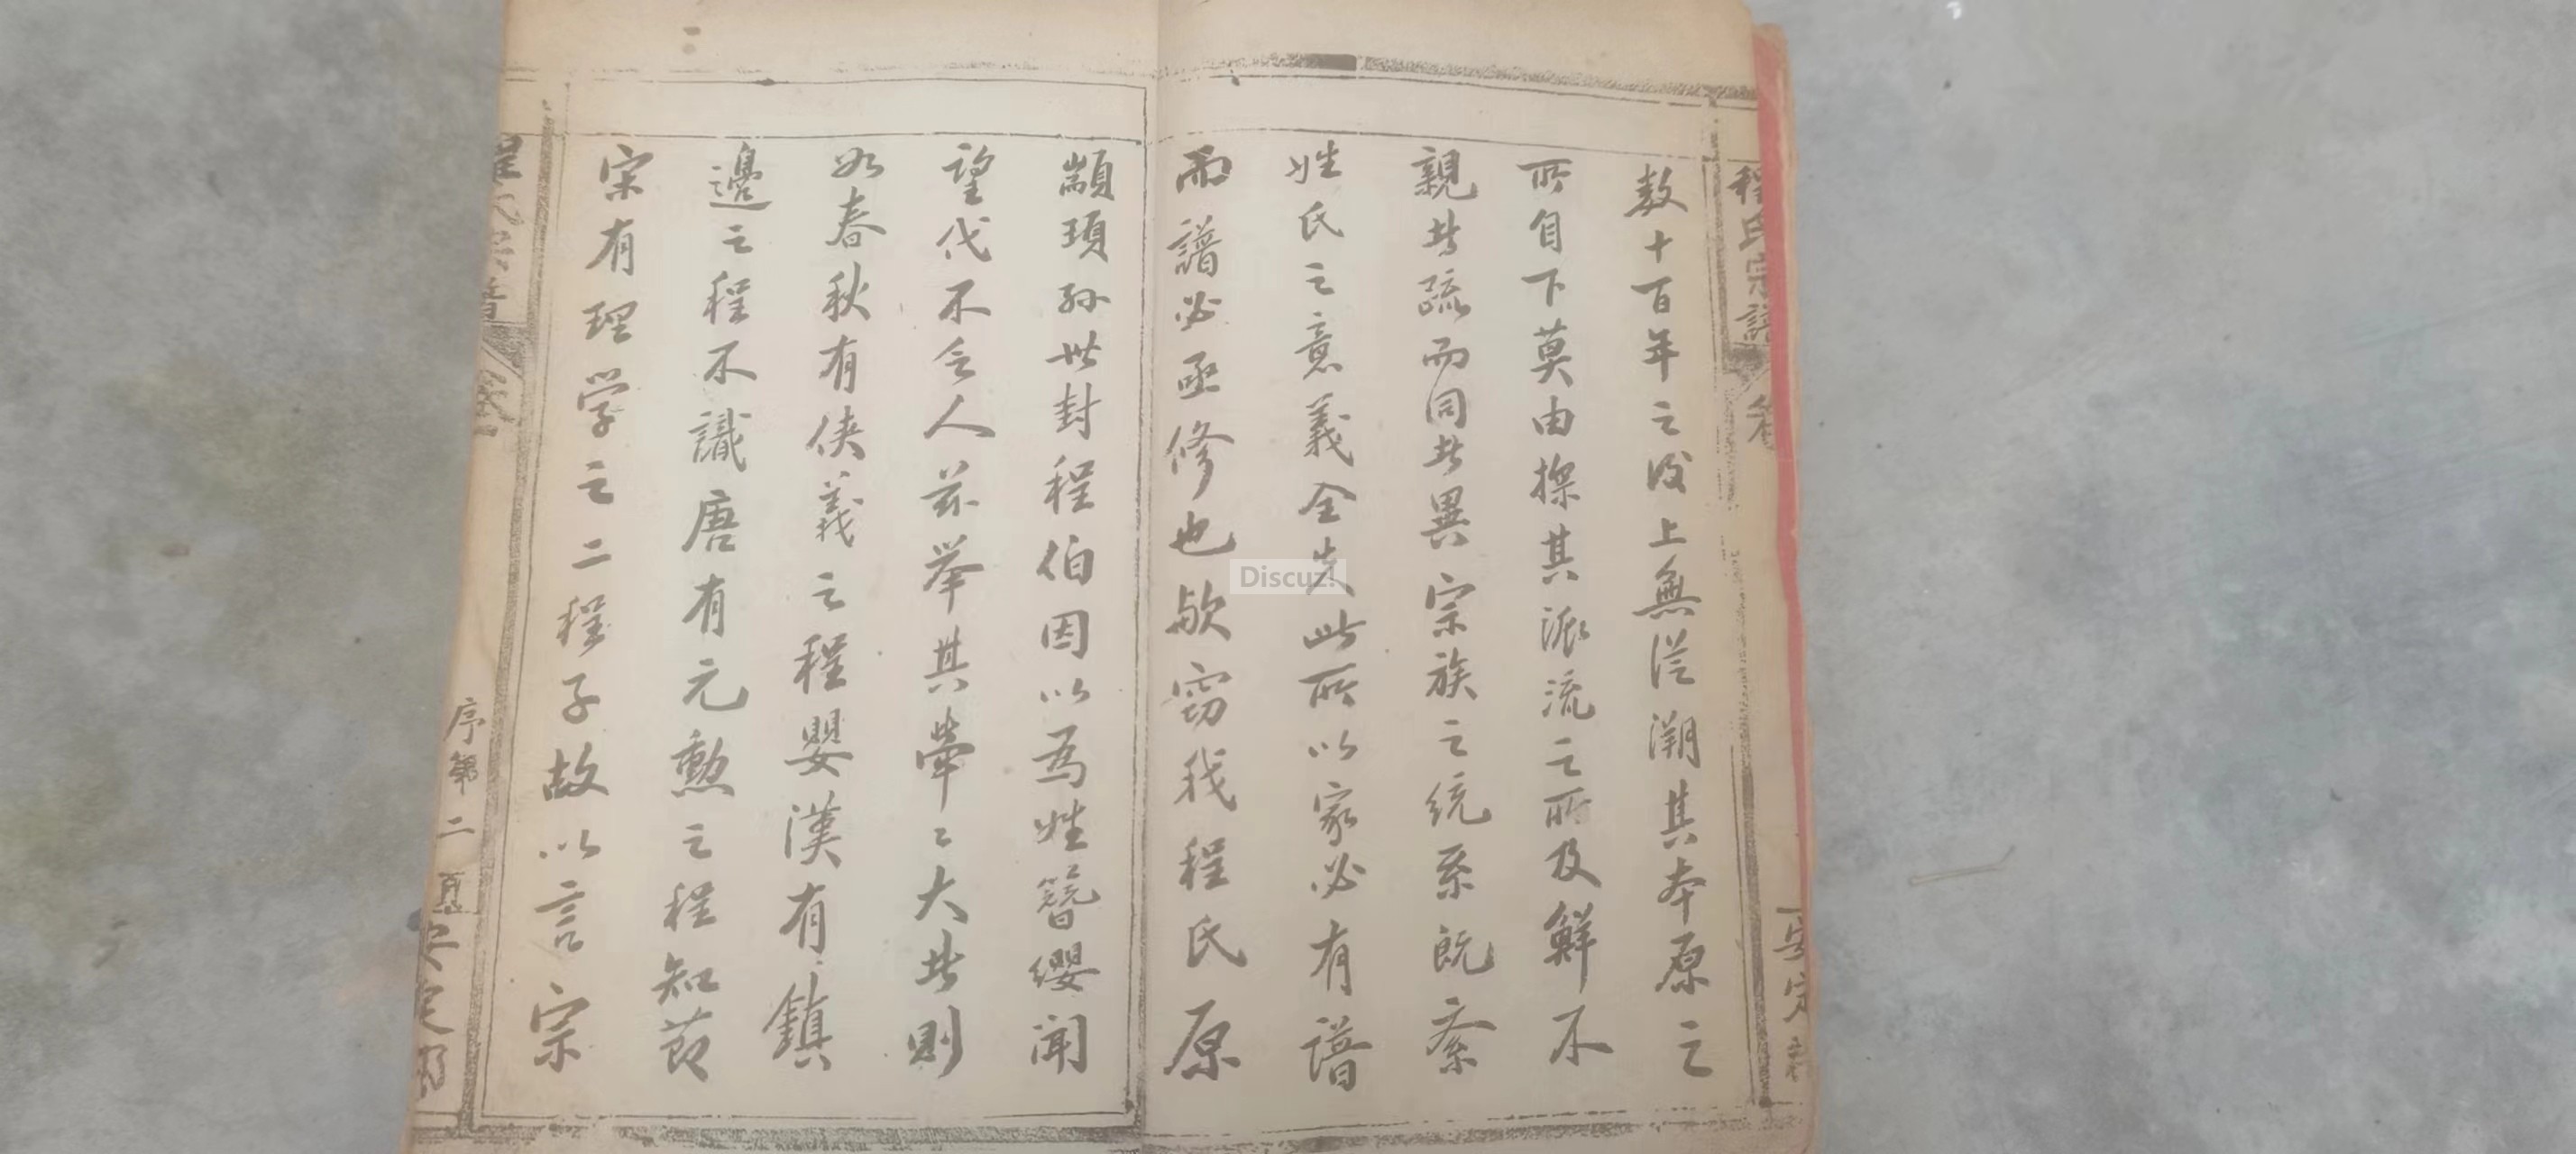 程氏宗譜
卷
安定
数十百年之後上無從溯其本原之
所自下莫由探其派流之所及鮮不
親其疏而同其異宗族之統系既紊
姓氏之意義全失此所以家必有譜
而譜必亟修也歟窃我程氏原
顓頊孫世封程伯因以為姓簪纓聞
望代不乏人兹举其犖〻大者則
如春秋有侠義之程嬰漢有鎮
邊之程不識唐有元勲之程知节
宋有理学之二程子故以言宗
程氏宗譜
卷一
序第二頁
安定郡
Discuz!